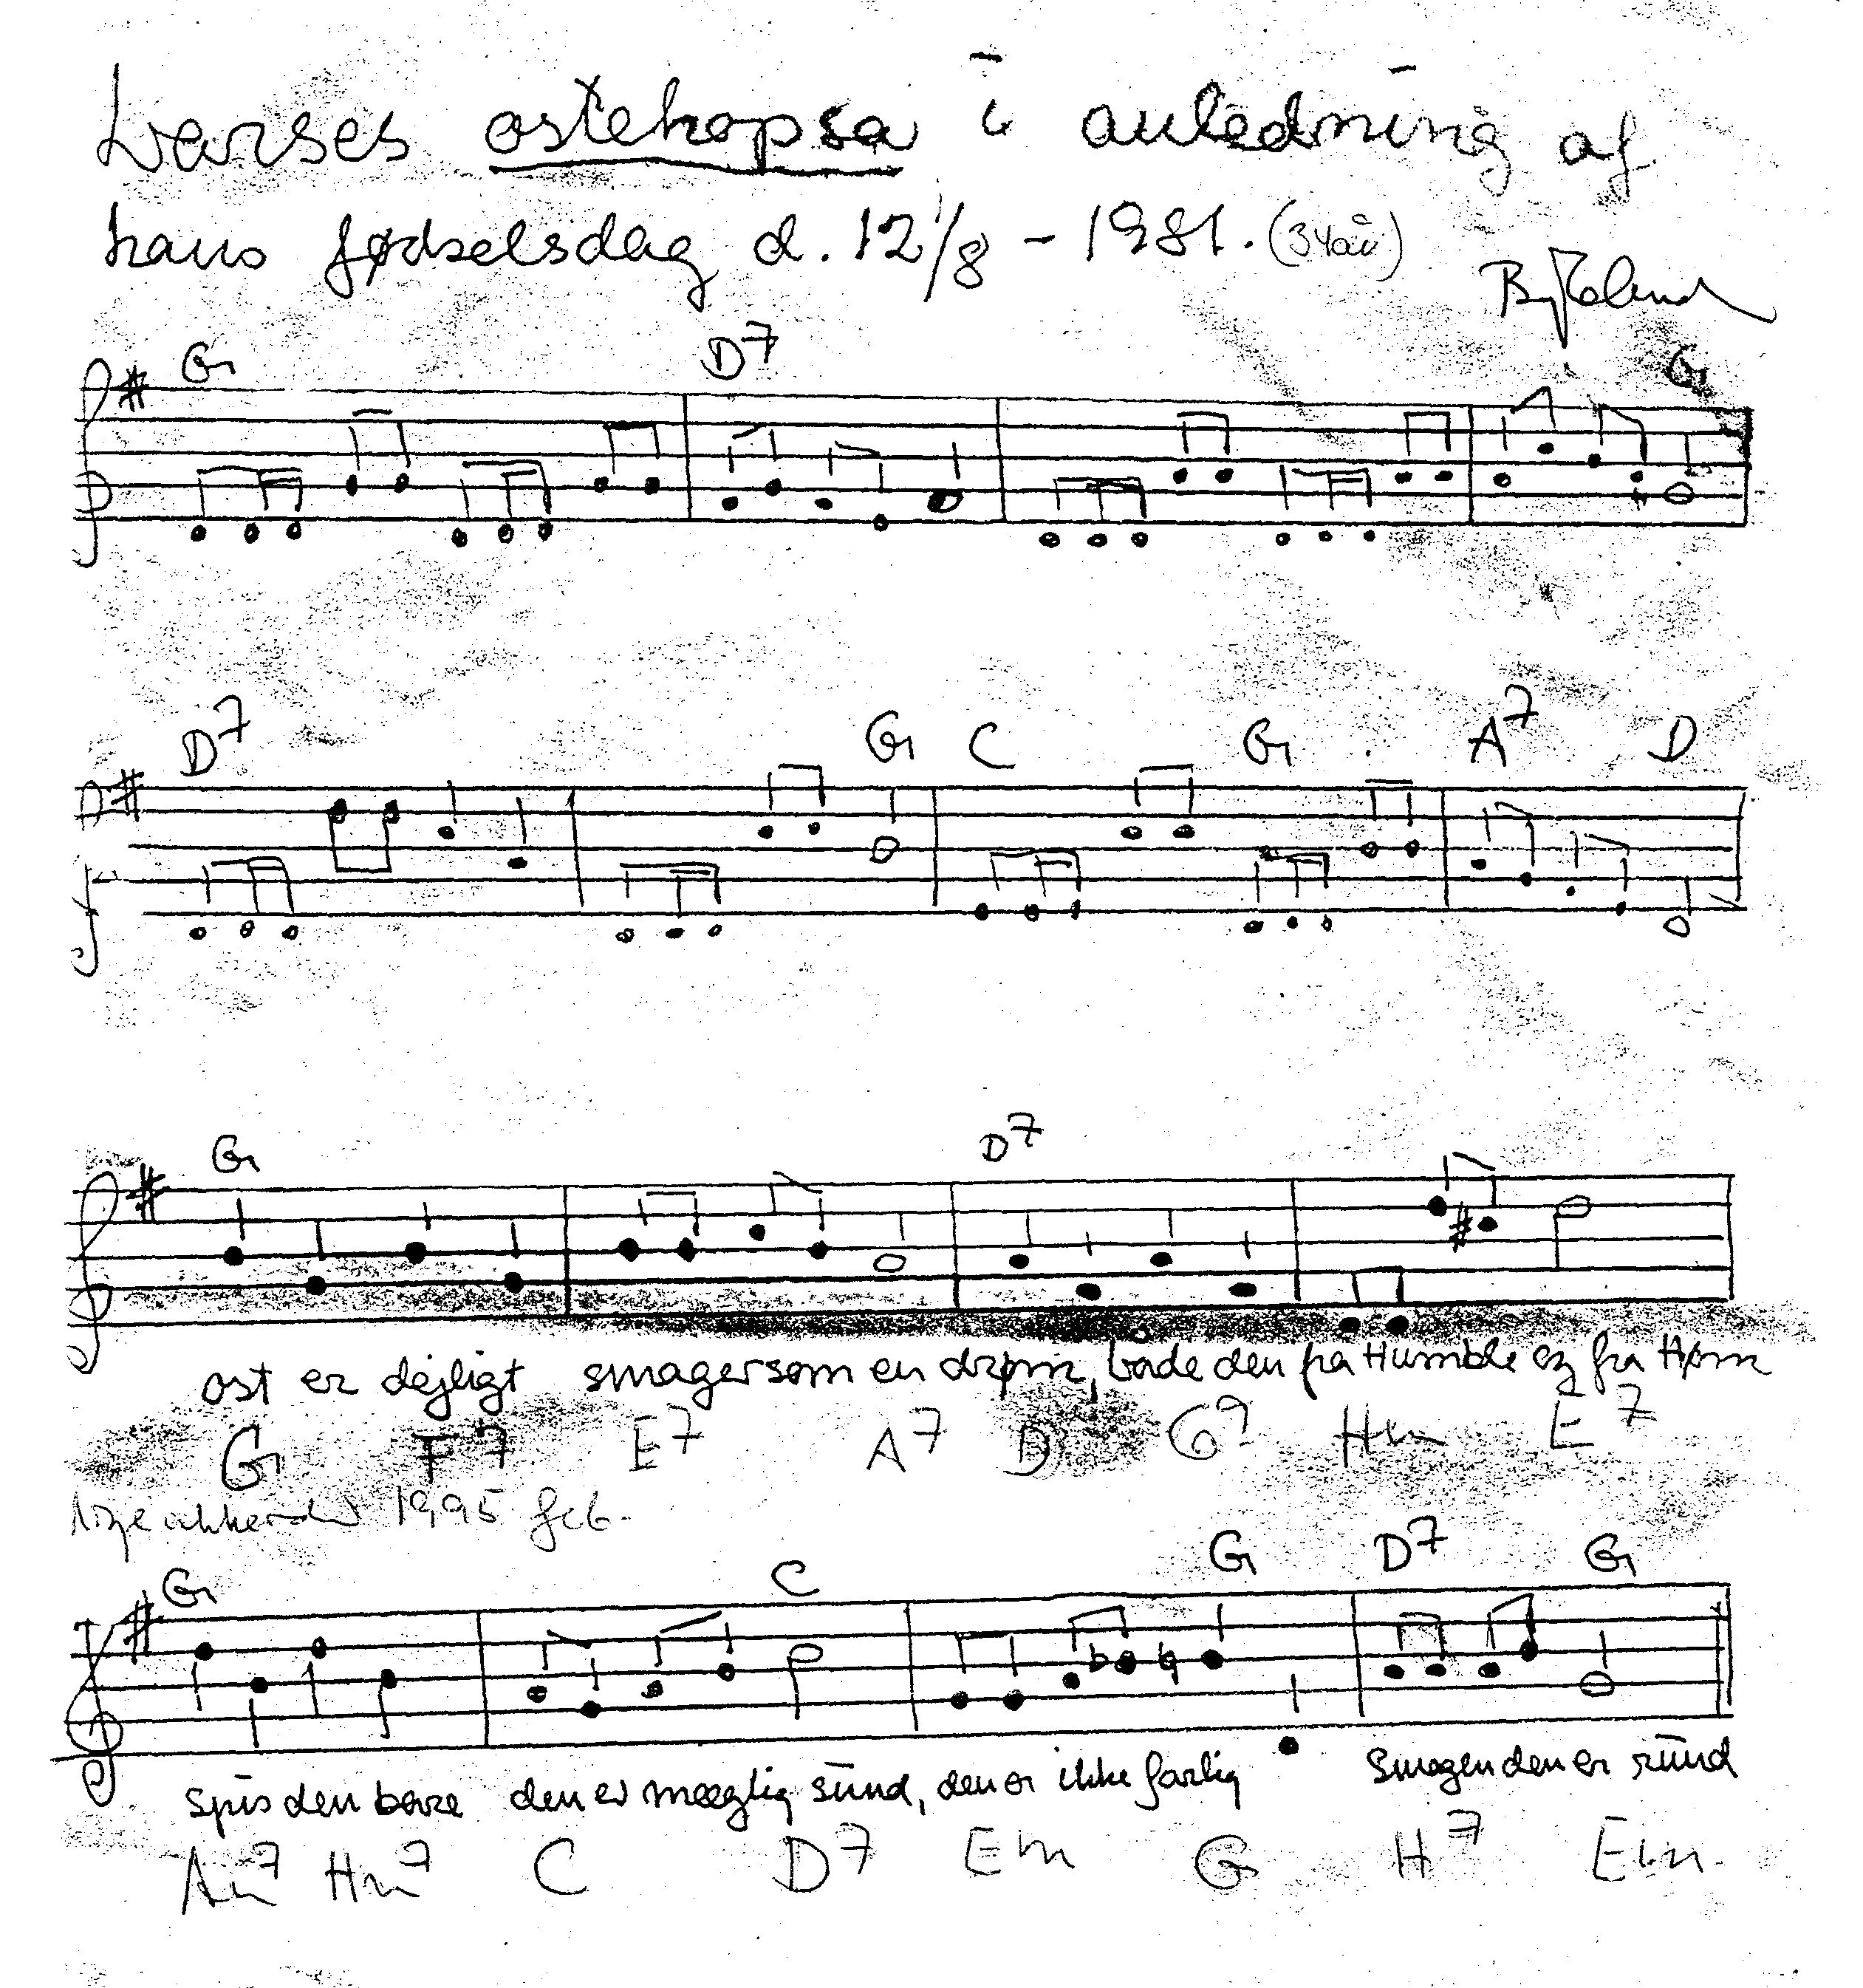 Lasses ostehopsa i anledning af
hans fødselsdag d. 12/8 - 1981. (34 år)
G D7 G
D7 G C G A7 D
G D7
ost er dejligt smager som en drøm, både den fra Humble og fra Høm
G F7 E7 A7 D G9 Hm E7
1995 feb.
G C G D7 G
spis den bare den er mægtig sund, den er ikke farlig smagen den er rund
Am7 Hm7 C D7 Em G H7 Em